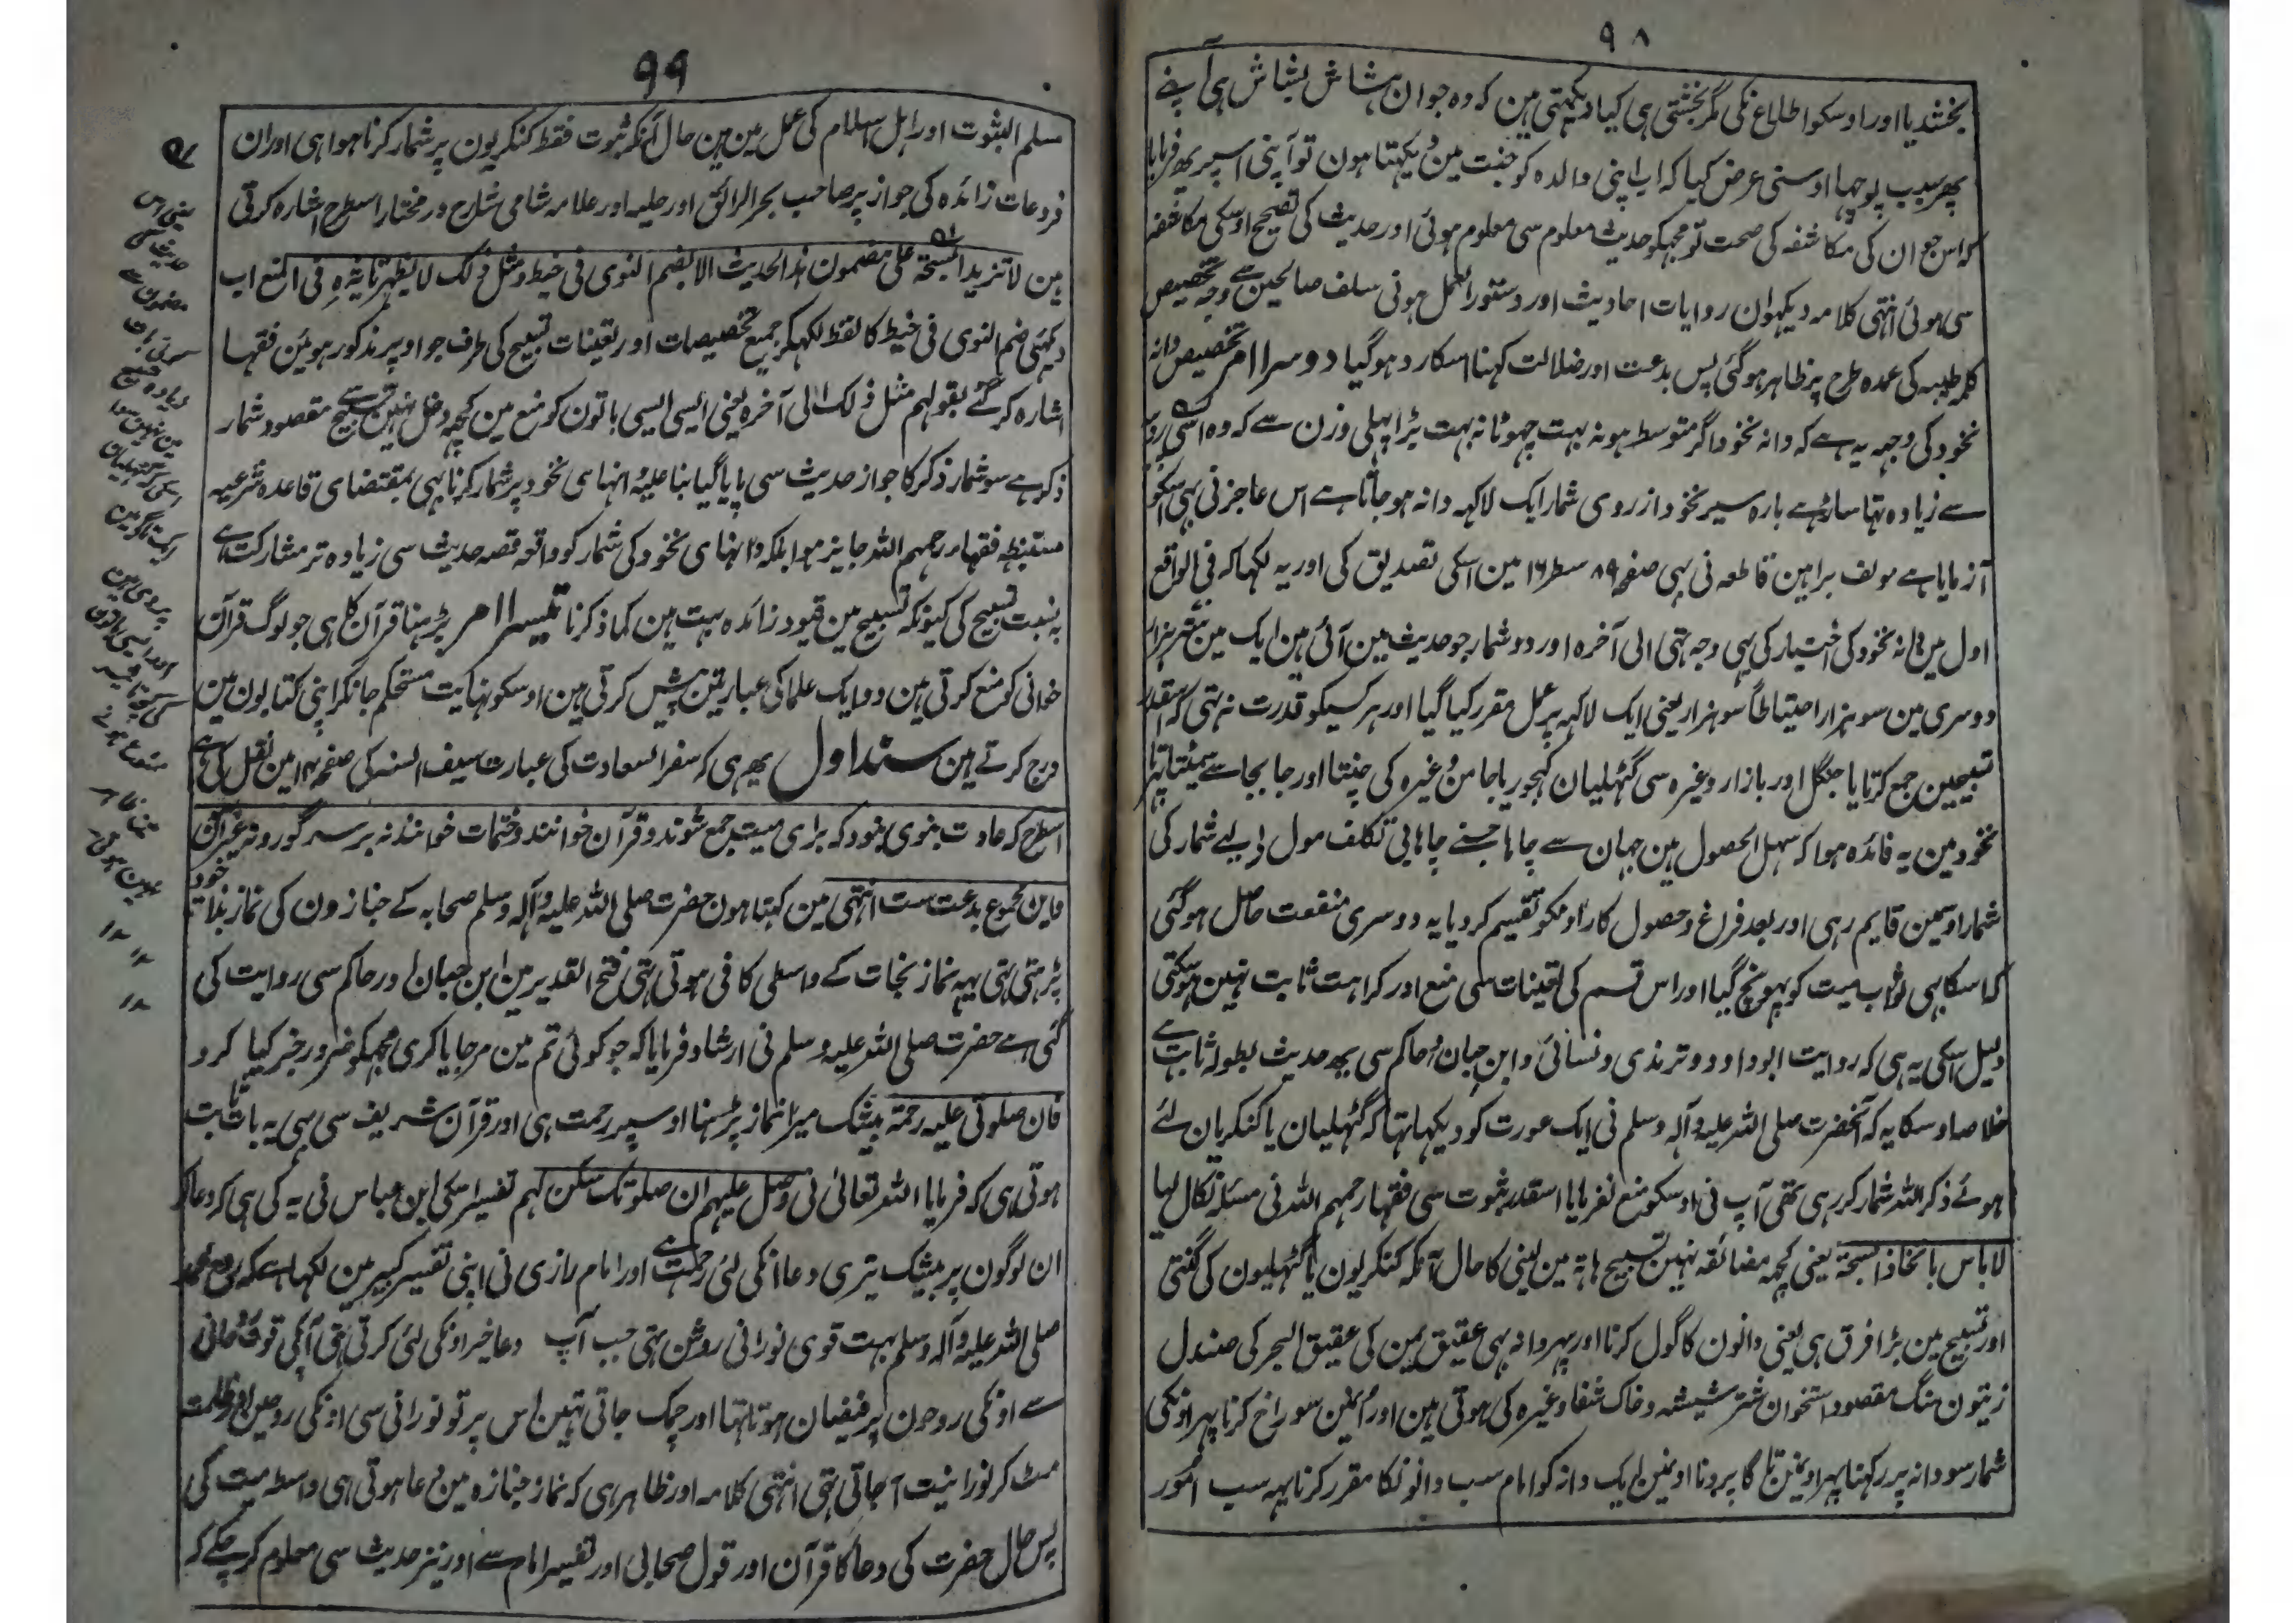 ۹۸
بخشدیا اور اوسکو اطلاع نکی مگر بخشتی ہی کیا دیکھتی ہین کہ وہ جوان ہشاش بشاش ہی آپنے
پھر سبب پوچھا اوسنی عرض کیا کہ اب اپنی والدہ کو جنت مین دیکھتا ہون تو آپنی اسپر یہ فرمایا
کہ اس جوان کی مکاشفہ کی صحت تو مجھکو حدیث معلوم سی معلوم ہوئی اور حدیث کی تصحیح اوسکی مکاشفہ
سی ہوئی انتہی کلامہ دیکھو ان روایات احادیث اور دستور العمل ہونی سلف صالحین سے وجہ تخصیص
کلمہ طیبہ کی عمدہ طرح پر ظاہر ہوگئی پس بدعت اور ضلالت کہنا اسکا رد ہوگیا دوسرا امر تخصیص دانہ
نخود کی وجہ یہ ہے کہ دانہ نخود اگر متوسط ہو نہ بہت چھوٹا نہ بہت بڑا پہلی وزن سے کہ وہ اسی روپیہ
سے زیادہ تھا ساڑہے بارہ سیر نخود از روی شمار ایک لاکہہ دانہ ہو جاتا ہے اس عاجز نی بہی اسکو
آزمایا ہے مولف براہین قاطعہ نی بہی صفحہ ۸۹ سطر ۱۶ مین اسکی تصدیق کی اور یہ لکہا کہ فی الواقع
اول مین دانہ نخود کی اختیار کی یہی وجہ تہی الی آخرہ اور دو شمار جو حدیث مین آئی ہین ایک مین ستر ہزار
دوسری مین سو ہزار احتیاطاً سو ہزار یعنی ایک لاکہہ پر عمل مقرر کیا گیا اور ہر کسیکو قدرت نہ تہی کہ اسقدر
تسبیحین جمع کرتا یا جنگل اور بازار وغیرہ سی گٹہلیان کہجور یا جامن وغیرہ کی چنتا اور جا بجا سے سمیٹتا پہرتا
نخود مین یہ فائدہ ہوا کہ سہل الحصول ہین جہان سے چاہا جسنے چاہا بی تکلف مول لی لیے شمار کی
شمار اوسمین قایم رہی اور بعد فراغ و حصول کار اونکو تقسیم کردیا یہ دوسری منفعت حاصل ہوگئی
کہ اسکا بہی ثواب میت کو پہونچ گیا اور اس قسم کی تعینات سی منع اور کراہت ثابت نہین ہوسکتی
دلیل اسکی یہ ہی کہ روایت ابو داود و ترمذی و نسائی و ابن حبان و حاکم سی یہ حدیث بطولہ ثابت ہے
خلاصہ اوسکا یہ کہ آنحضرت صلی اللہ علیہ وآلہ وسلم نی ایک عورت کو دیکہا تہا کہ گٹہلیان یا کنکریان لئے
ہوئے ذکر اللہ شمار کر رہی تھی آپ نی اوسکو منع نفرمایا اسقدر ثبوت سی فقہا رحمہم اللہ نی مسئلہ نکال لیا
لا باس باتخاذ السبحۃ یعنی کچہہ مضائقہ نہین تسبیح ہاتہہ مین لینی کا حال آنکہ کنکریون یا گٹہلیون کی گنتی
اور تسبیح مین بڑا فرق ہی یعنی دانون کا گول کرنا اور پہر دانہ بہی عقیق یمن کی عقیق البحر کی صندل
زیتون سنگ مقصود استخوان شتر شیشہ و خاک شفا وغیرہ کی ہوتی ہین اور اونمین سوراخ کرنا پہر اونکی
شمار سو دانہ پر رکہنا پہر اونمین تاگا پرونا اونمین ایک دانہ کو امام سب دانونکا مقرر کرنا یہ سب امور
۹۹
مسلم الثبوت اور اہل اسلام کی عمل مین ہین حال آنکہ ثبوت فقط کنکریون پر شمار کرنا ہوا ہی اور ان
فروعات زائدہ کی جواز پر صاحب بحر الرائق اور حلیہ اور علامہ شامی شارح در مختار اسطرح اشارہ کرتی
ہین لا تزید السبحۃ علی مضمون ہذا الحدیث الا بضم النوی فی خیط و مثل ذلک لا یظہر تاثیرہ فی المنع اب
دیکہئی ضم النوی فی خیط کا لفظ لکہکر جمیع تخصیصات اور تعینات تسبیح کی طرف جو اوپر مذکور ہوئین فقہا
اشارہ کر گئے بقولہم مثل ذلک الی آخرہ یعنی ایسی ایسی باتون کو منع مین کچہہ دخل نہین تسبیح سے مقصود شمار
ذکر ہے سو شمار ذکر کا جواز حدیث سی پایا گیا بناء علیہ دانہای نخود پر شمار کرنا بہی بمقتضای قاعدہ شرعیہ
مستنبطہ فقہاء رحمہم اللہ جایز ہوا بلکہ دانہای نخود کی شمار کو واقعہ قصہ حدیث سی زیادہ تر مشارکت ہے
بہ نسبت تسبیح کی کیونکہ تسبیح مین قیود زائدہ بہت ہین کما ذکرنا تیسرا امر پڑہنا قرآن کا ہی جو لوگ قرآن
خوانی کو منع کرتی ہین دو ایک علما کی عبارتین پیش کرتی ہین اوسکو نہایت مستحکم جانکر اپنی کتابون مین
درج کرتے ہین سند اول یہ ہی کہ سفر السعادت کی عبارت سیف السنہ کی صفحہ ۱۴ مین نقل کی ہے
اسطرح کہ عادت نبوی نبود کہ برای میت جمع شوند و قرآن خوانند و ختمات خوانند نہ برسر گور و نہ غیر آن
و این مجموع بدعت ست انتہی مین کہتا ہون حضرت صلی اللہ علیہ وآلہ وسلم صحابہ کے جنازون کی نماز بذات خود
پڑہتی تہی یہہ نماز نجات کے واسطی کافی ہوتی تہی فتح القدیر مین ابن حبان اور حاکم سی روایت کی
گئی ہے حضرت صلی اللہ علیہ وسلم نی ارشاد فرمایا کہ جو کوئی تم مین مر جایا کری مجہکو ضرور خبر کیا کرو
فان صلوتی علیہ رحمۃ بیشک میرا نماز پڑہنا اوسپر رحمت ہی اور قرآن شریف سی بہی یہ بات ثابت
ہوتی ہی کہ فرمایا اللہ تعالی نی وصل علیہم ان صلوتک سکن لہم تفسیر اسکی ابن عباس نی یہ کی ہی کہ دعا کر
ان لوگون پر بیشک تیری دعا انکی لئی رحمت ہے اور امام رازی نی اپنی تفسیر کبیر مین لکہا ہے کہ روح محمد
صلی اللہ علیہ وآلہ وسلم بہت قوی نورانی روشن تہی جب آپ دعا خیر اونکی لئی کرتی تہی آپکی قوت روحانی
سے اونکی روحون پر فیضان ہوتا تہا اور چمک جاتی تہین اس پرتو نورانی سی اونکی روحین اور ظلمت
مٹ کر نورانیت آجاتی تہی انتہی کلامہ اور ظاہر ہی کہ نماز جنازہ مین دعا ہوتی ہی واسطہ میت کی
پس حال حضرت کی دعا کا قرآن اور قول صحابی اور تفسیر امام سے اور نیز حدیث سی معلوم کر چکے کہ
یعنی اس
حدیث کی
مضمون سے
زیادہ
مین نہین سوا
اسکی کہ گٹہلیان
ایک تاگے مین
پروئی ہین
اور ایسی باتون
کی تاثیر
منع ہونے
مین ظاہر
نہین ہوتی
۱۲ ۱۲
۱۲